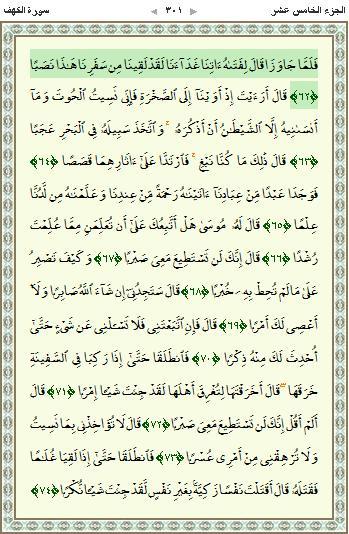 الجزء الخامس عشر ٣٠١ سورة الكهف
فَلَمَّا جَاوَزَا قَالَ لِفَتَىٰهُ ءَاتِنَا غَدَآءَنَا لَقَدْ لَقِينَا مِن سَفَرِنَا هَٰذَا نَصَبًا
﴿٦٢﴾ قَالَ أَرَءَيْتَ إِذْ أَوَيْنَآ إِلَى ٱلصَّخْرَةِ فَإِنِّى نَسِيتُ ٱلْحُوتَ وَمَآ
أَنسَىٰنِيهُ إِلَّا ٱلشَّيْطَٰنُ أَنْ أَذْكُرَهُۥ ۚ وَٱتَّخَذَ سَبِيلَهُۥ فِى ٱلْبَحْرِ عَجَبًا
﴿٦٣﴾ قَالَ ذَٰلِكَ مَا كُنَّا نَبْغِ ۚ فَٱرْتَدَّا عَلَىٰٓ ءَاثَارِهِمَا قَصَصًا ﴿٦٤﴾
فَوَجَدَا عَبْدًا مِّنْ عِبَادِنَآ ءَاتَيْنَٰهُ رَحْمَةً مِّنْ عِندِنَا وَعَلَّمْنَٰهُ مِن لَّدُنَّا
عِلْمًا ﴿٦٥﴾ قَالَ لَهُۥ مُوسَىٰ هَلْ أَتَّبِعُكَ عَلَىٰٓ أَن تُعَلِّمَنِ مِمَّا عُلِّمْتَ
رُشْدًا ﴿٦٦﴾ قَالَ إِنَّكَ لَن تَسْتَطِيعَ مَعِىَ صَبْرًا ﴿٦٧﴾ وَكَيْفَ تَصْبِرُ
عَلَىٰ مَا لَمْ تُحِطْ بِهِۦ خُبْرًا ﴿٦٨﴾ قَالَ سَتَجِدُنِىٓ إِن شَآءَ ٱللَّهُ صَابِرًا وَلَآ
أَعْصِى لَكَ أَمْرًا ﴿٦٩﴾ قَالَ فَإِنِ ٱتَّبَعْتَنِى فَلَا تَسْـَٔلْنِى عَن شَىْءٍ حَتَّىٰٓ
أُحْدِثَ لَكَ مِنْهُ ذِكْرًا ﴿٧٠﴾ فَٱنطَلَقَا حَتَّىٰٓ إِذَا رَكِبَا فِى ٱلسَّفِينَةِ
خَرَقَهَا ۖ قَالَ أَخَرَقْتَهَا لِتُغْرِقَ أَهْلَهَا لَقَدْ جِئْتَ شَيْـًٔا إِمْرًا ﴿٧١﴾ قَالَ
أَلَمْ أَقُلْ إِنَّكَ لَن تَسْتَطِيعَ مَعِىَ صَبْرًا ﴿٧٢﴾ قَالَ لَا تُؤَاخِذْنِى بِمَا نَسِيتُ
وَلَا تُرْهِقْنِى مِنْ أَمْرِى عُسْرًا ﴿٧٣﴾ فَٱنطَلَقَا حَتَّىٰٓ إِذَا لَقِيَا غُلَٰمًا
فَقَتَلَهُۥ قَالَ أَقَتَلْتَ نَفْسًا زَكِيَّةًۢ بِغَيْرِ نَفْسٍ لَّقَدْ جِئْتَ شَيْـًٔا نُّكْرًا ﴿٧٤﴾